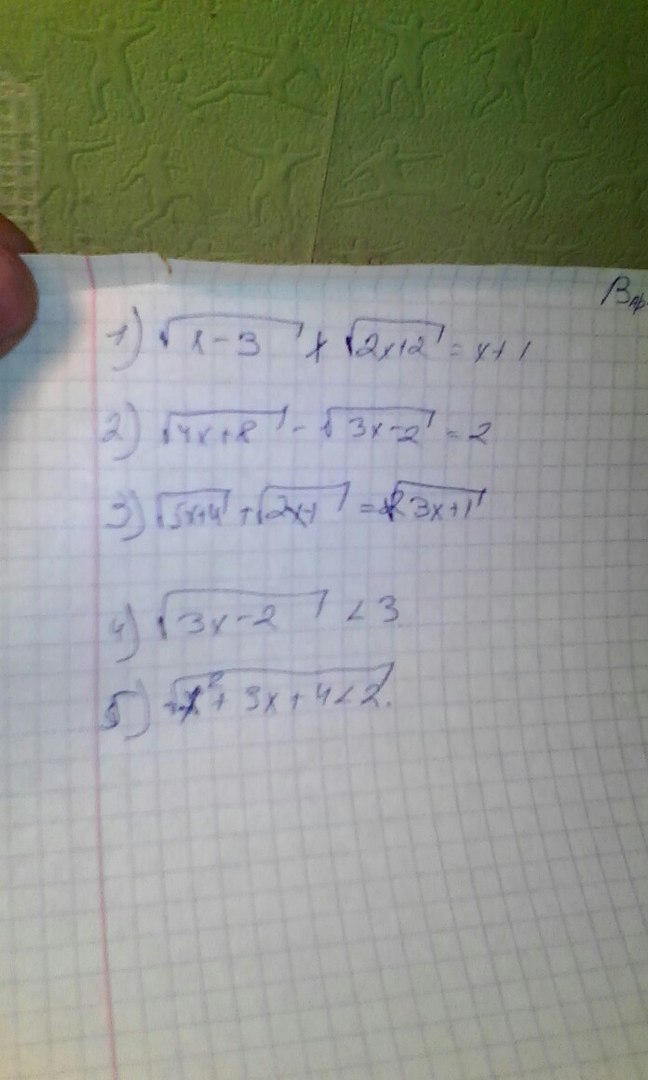 Вар
1) √(x-3) + √(2x+2) = x+1
2) √(4x+8) - √(3x-2) = 2
3) + = √(3x+1)
4) √(3x-2) < 3
5) √(x²+3x+4) < 2.